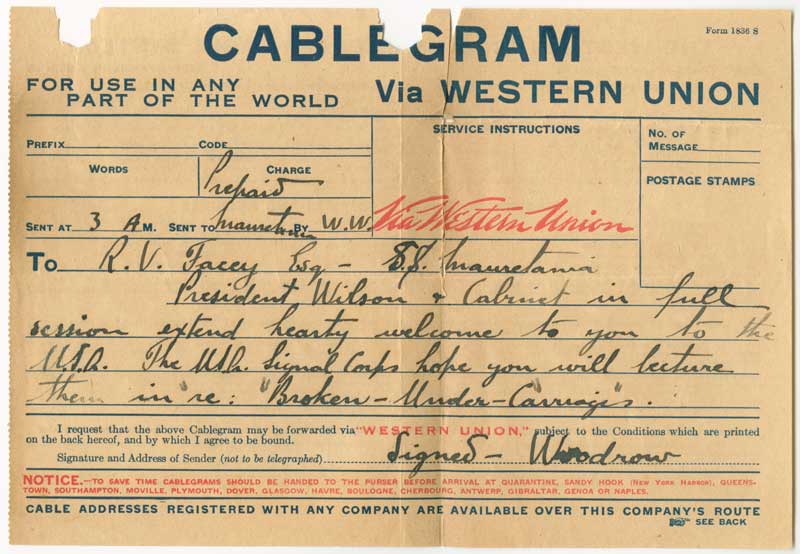 CABLEGRAM
Form 1836 S
FOR USE IN ANY
PART OF THE WORLD
Via WESTERN UNION
PREFIX
CODE
SERVICE INSTRUCTIONS
No. OF
MESSAGE
WORDS
CHARGE
Prepaid
POSTAGE STAMPS
SENT AT 3 A M. SENT TO Mauretania BY W.W.
Via Western Union
To R. V. Facey Esq - S.S. Mauretania
President Wilson & Cabinet in full
session extend hearty welcome to you to the
U.S.A. The U.S. Signal Corps hope you will lecture
them in "re: "Broken-Under-Carriages".
I request that the above Cablegram may be forwarded via "WESTERN UNION," subject to the Conditions which are printed
on the back hereof, and by which I agree to be bound.
Signature and Address of Sender (not to be telegraphed) Signed - Woodrow
NOTICE.—TO SAVE TIME CABLEGRAMS SHOULD BE HANDED TO THE PURSER BEFORE ARRIVAL AT QUARANTINE, SANDY HOOK (NEW YORK HARBOR), QUEENS-
TOWN, SOUTHAMPTON, MOVILLE, PLYMOUTH, DOVER, GLASGOW, HAVRE, BOULOGNE, CHERBOURG, ANTWERP, GIBRALTAR, GENOA OR NAPLES.
CABLE ADDRESSES REGISTERED WITH ANY COMPANY ARE AVAILABLE OVER THIS COMPANY'S ROUTE
SEE BACK